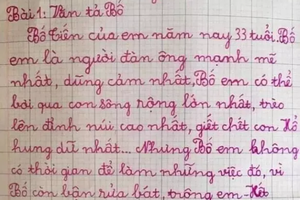 Bài 1: Văn tả Bố
Bố Tiên của em năm nay 33 tuổi. Bố
em là người đàn ông mạnh mẽ
nhất, dũng cảm nhất. Bố em có thể
bơi qua con sông rộng lớn nhất, trèo
lên đỉnh núi cao nhất, giết chết con Hổ
hung dữ nhất... Nhưng Bố em không
có thời gian để làm những việc đó, vì
Bố còn bận rửa bát, trông em